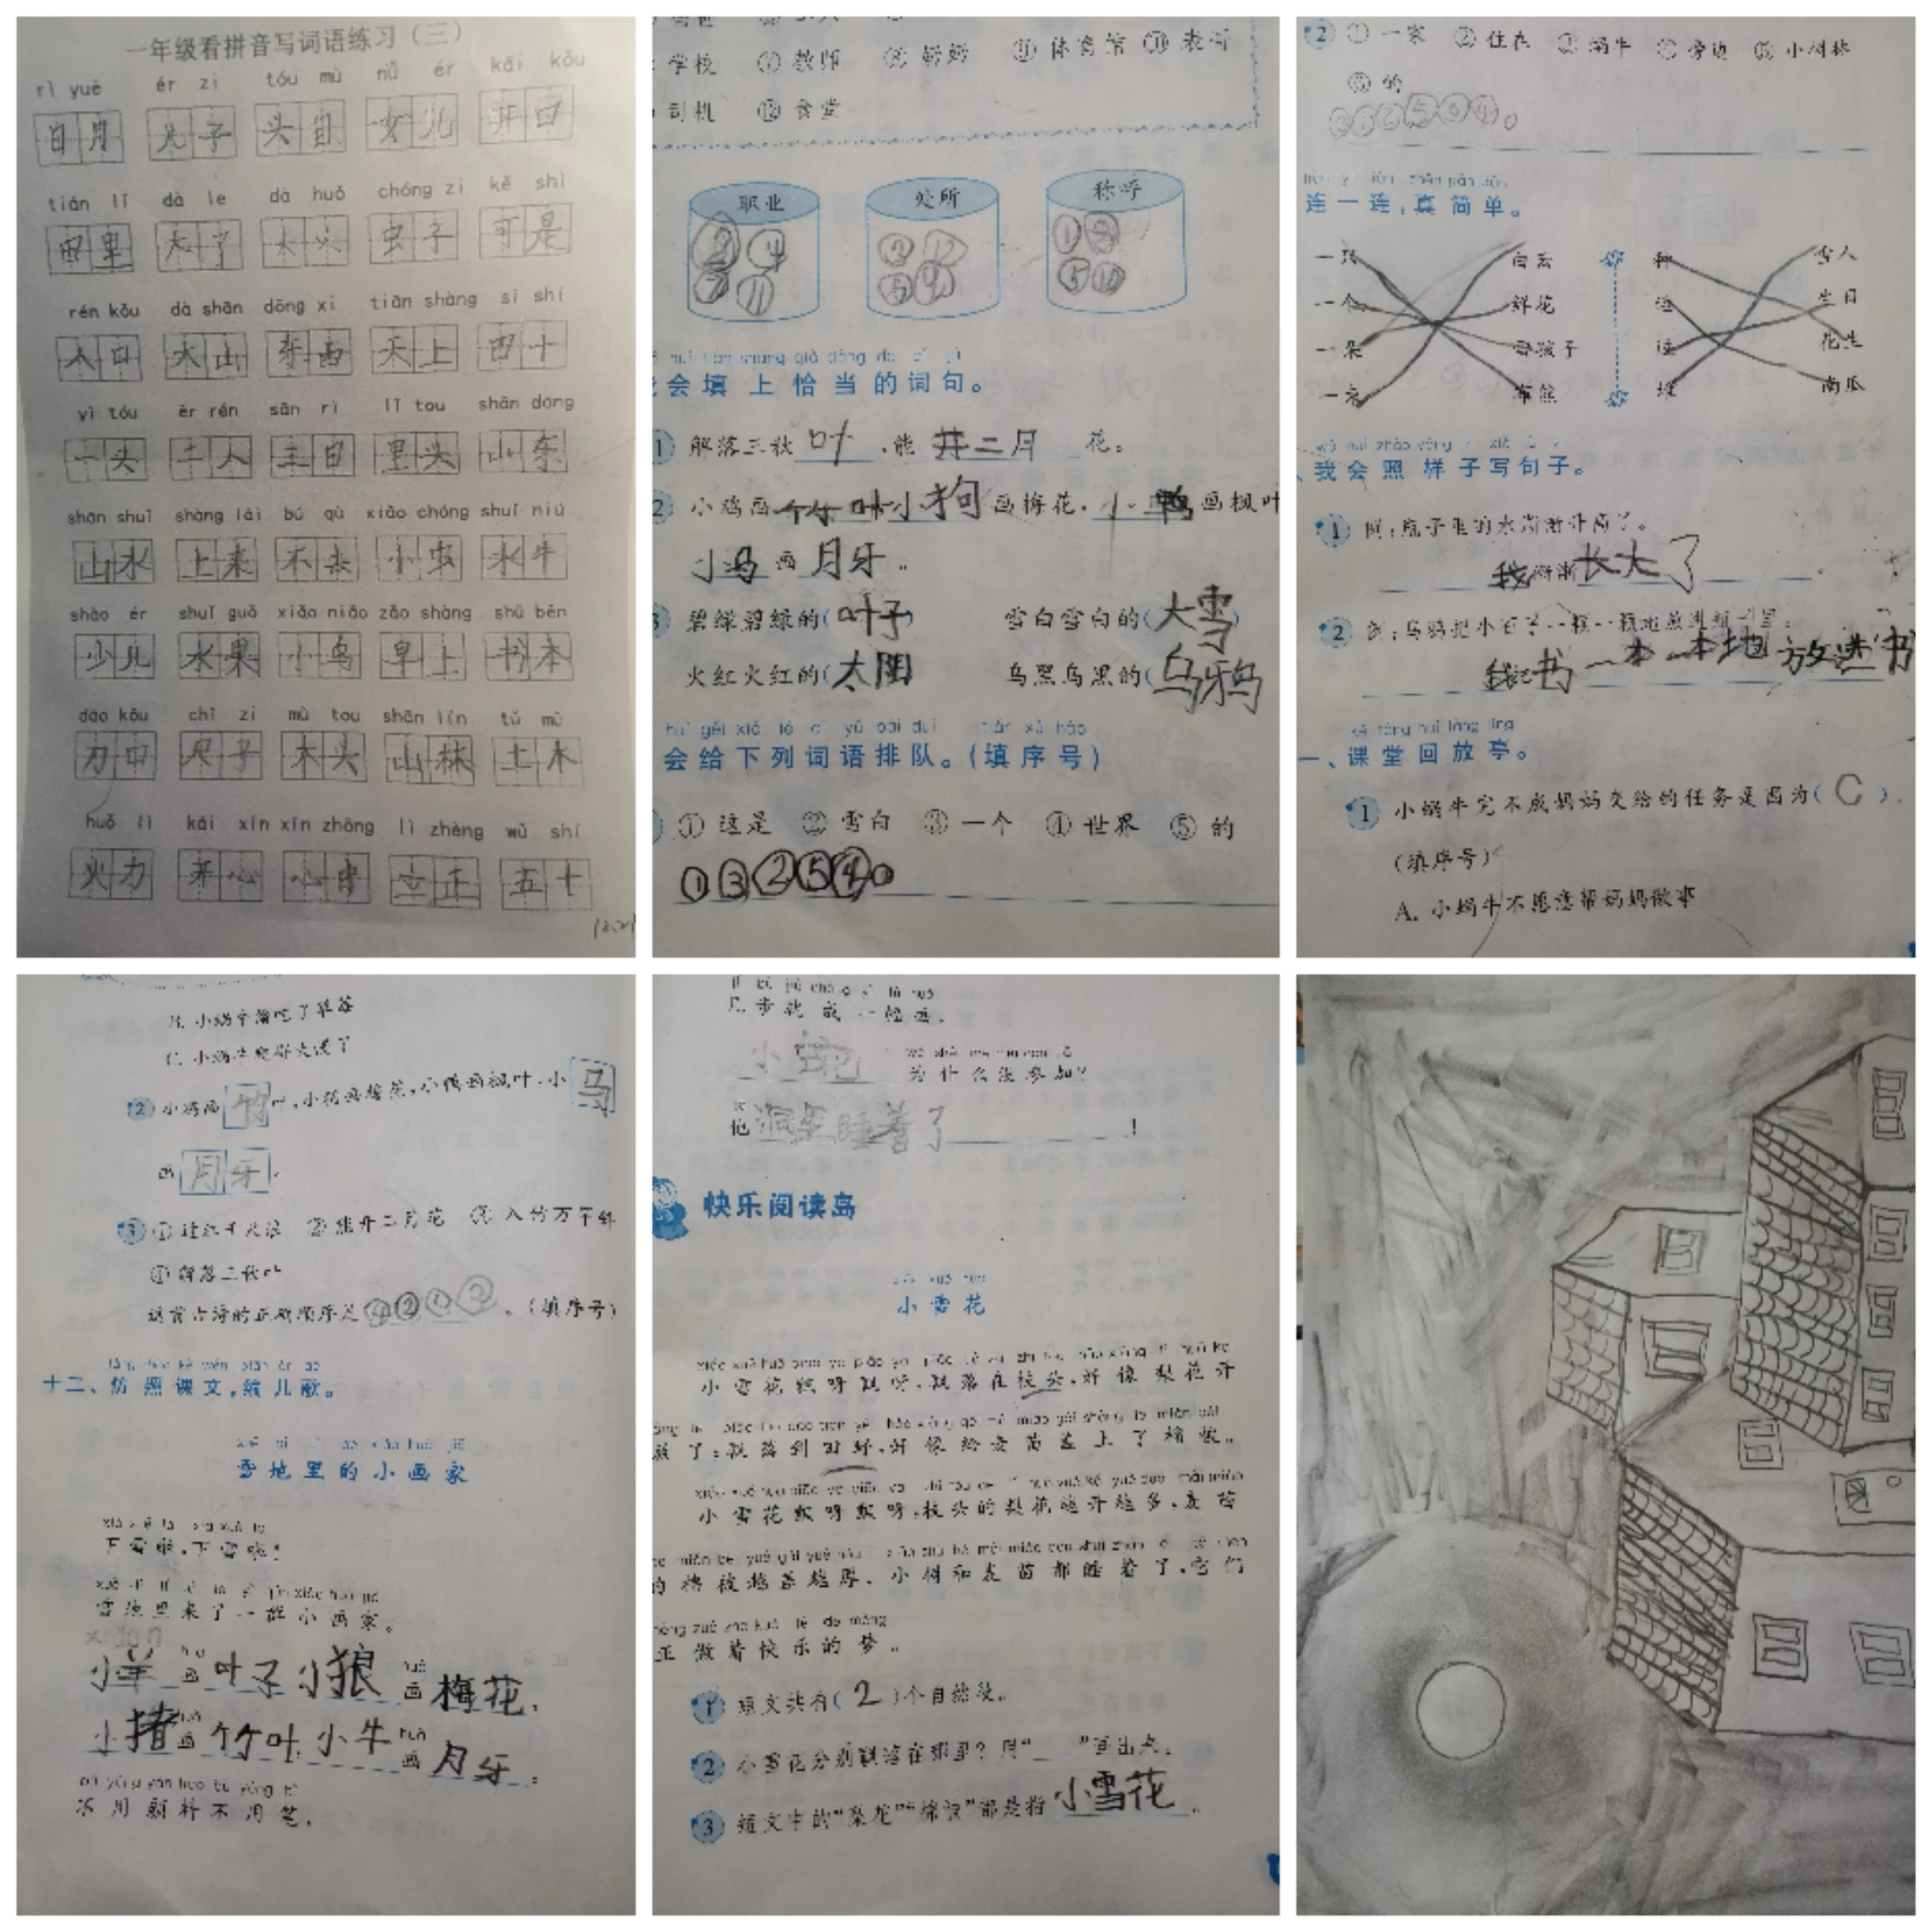 一年级看拼音写词语练习（三）
rì yuè ér zi tóu mù nǚ ér kāi kǒu
日月 儿子 头目 女儿 开口
tián lǐ dà le dà huǒ chóng zi kě shì
田里 大了 大火 虫子 可是
rén kǒu dà shān dōng xi tiān shàng sì shí
人口 大山 东西 天上 四十
yì tóu èr rén sān rì lǐ tou shān dōng
一头 二人 三日 里头 山东
shān shuǐ shàng lái bú qù xiǎo chóng shuǐ niú
山水 上来 不去 小虫 水牛
shào ér shuǐ guǒ xiǎo niǎo zǎo shàng shū běn
少儿 水果 小鸟 早上 书本
dāo kǒu chǐ zi mù tou shān lín tǔ mù
刀口 尺子 木头 山林 土木
huǒ lì kāi xīn xīn zhōng lì zhèng wǔ shí
火力 开心 心中 立正 五十
学校 ⑦ 教师 ⑧ 奶奶 ⑨ 体育馆 ⑩ 表哥
司机 ⑫ 食堂
职业 处所 称呼
会填上恰当的词句。
1 解落三秋 叶 ,能 开二月 花。
2 小鸡画 竹叶 小狗 画梅花,小 鸭 画枫叶
小马 画 月牙 。
碧绿碧绿的( 叶子 ) 雪白雪白的( 大雪 )
火红火红的( 太阳 ) 乌黑乌黑的( 乌鸦
会给下列词语排队。(填序号)
① 这是 ② 雪白 ③ 一个 ④ 世界 ⑤ 的
①③②⑤④。
2 ① 一家 ② 住在 ③ 蜗牛 ④ 旁边 ⑤ 小树林
⑥ 的
连一连,真简单。
一只 白云 种 雪人
一个 鲜花 生日
一朵 女孩子 花生
布熊 堆 南瓜
我会照样子写句子。
1 例:瓶子里的水渐渐升高了。
我 渐渐 长大了 。
2 例:乌鸦把小石子一颗一颗地放进瓶子里。
我把 书一本一本地放进书
一、课堂回放亭。
1 小蜗牛完不成妈妈交给的任务是因为( C )。
(填序号)
A. 小蜗牛不愿意帮妈妈做事
B. 小蜗牛偷吃了草莓
C. 小蜗牛爬得太慢了
2 小鸡画 竹 叶,小狗画梅花,小鸭画枫叶,小 马
画 月牙 。
3 ① 过江千尺浪 ② 能开二月花 ③ 入竹万竿斜
④ 解落三秋叶
这首古诗的正确顺序是 ④②①③ 。(填序号)
十二、仿照课文,编儿歌。
雪地里的小画家
下雪啦,下雪啦!
雪地里来了一群小画家。
小羊 画 叶子 小狼 画 梅花,
小猪 画 竹叶, 小牛 画 月牙 。
不用颜料不用笔,
几步就成一幅画。
小蛇 为什么没参加?
他 洞里睡着了 !
快乐阅读岛
小雪花
小雪花飘呀飘呀,飘落在枝头,好像梨花开
放了;飘落到田野,好像给麦苗盖上了棉被。
小雪花飘呀飘呀,枝头的梨花越开越多,麦苗
的棉被越盖越厚。小树和麦苗都睡着了,它们
正做着快乐的梦。
1 短文共有( 2 )个自然段。
2 小雪花分别飘落在哪里?用“___”画出来。
3 短文中的“梨花”“棉被”都是指 小雪花 。